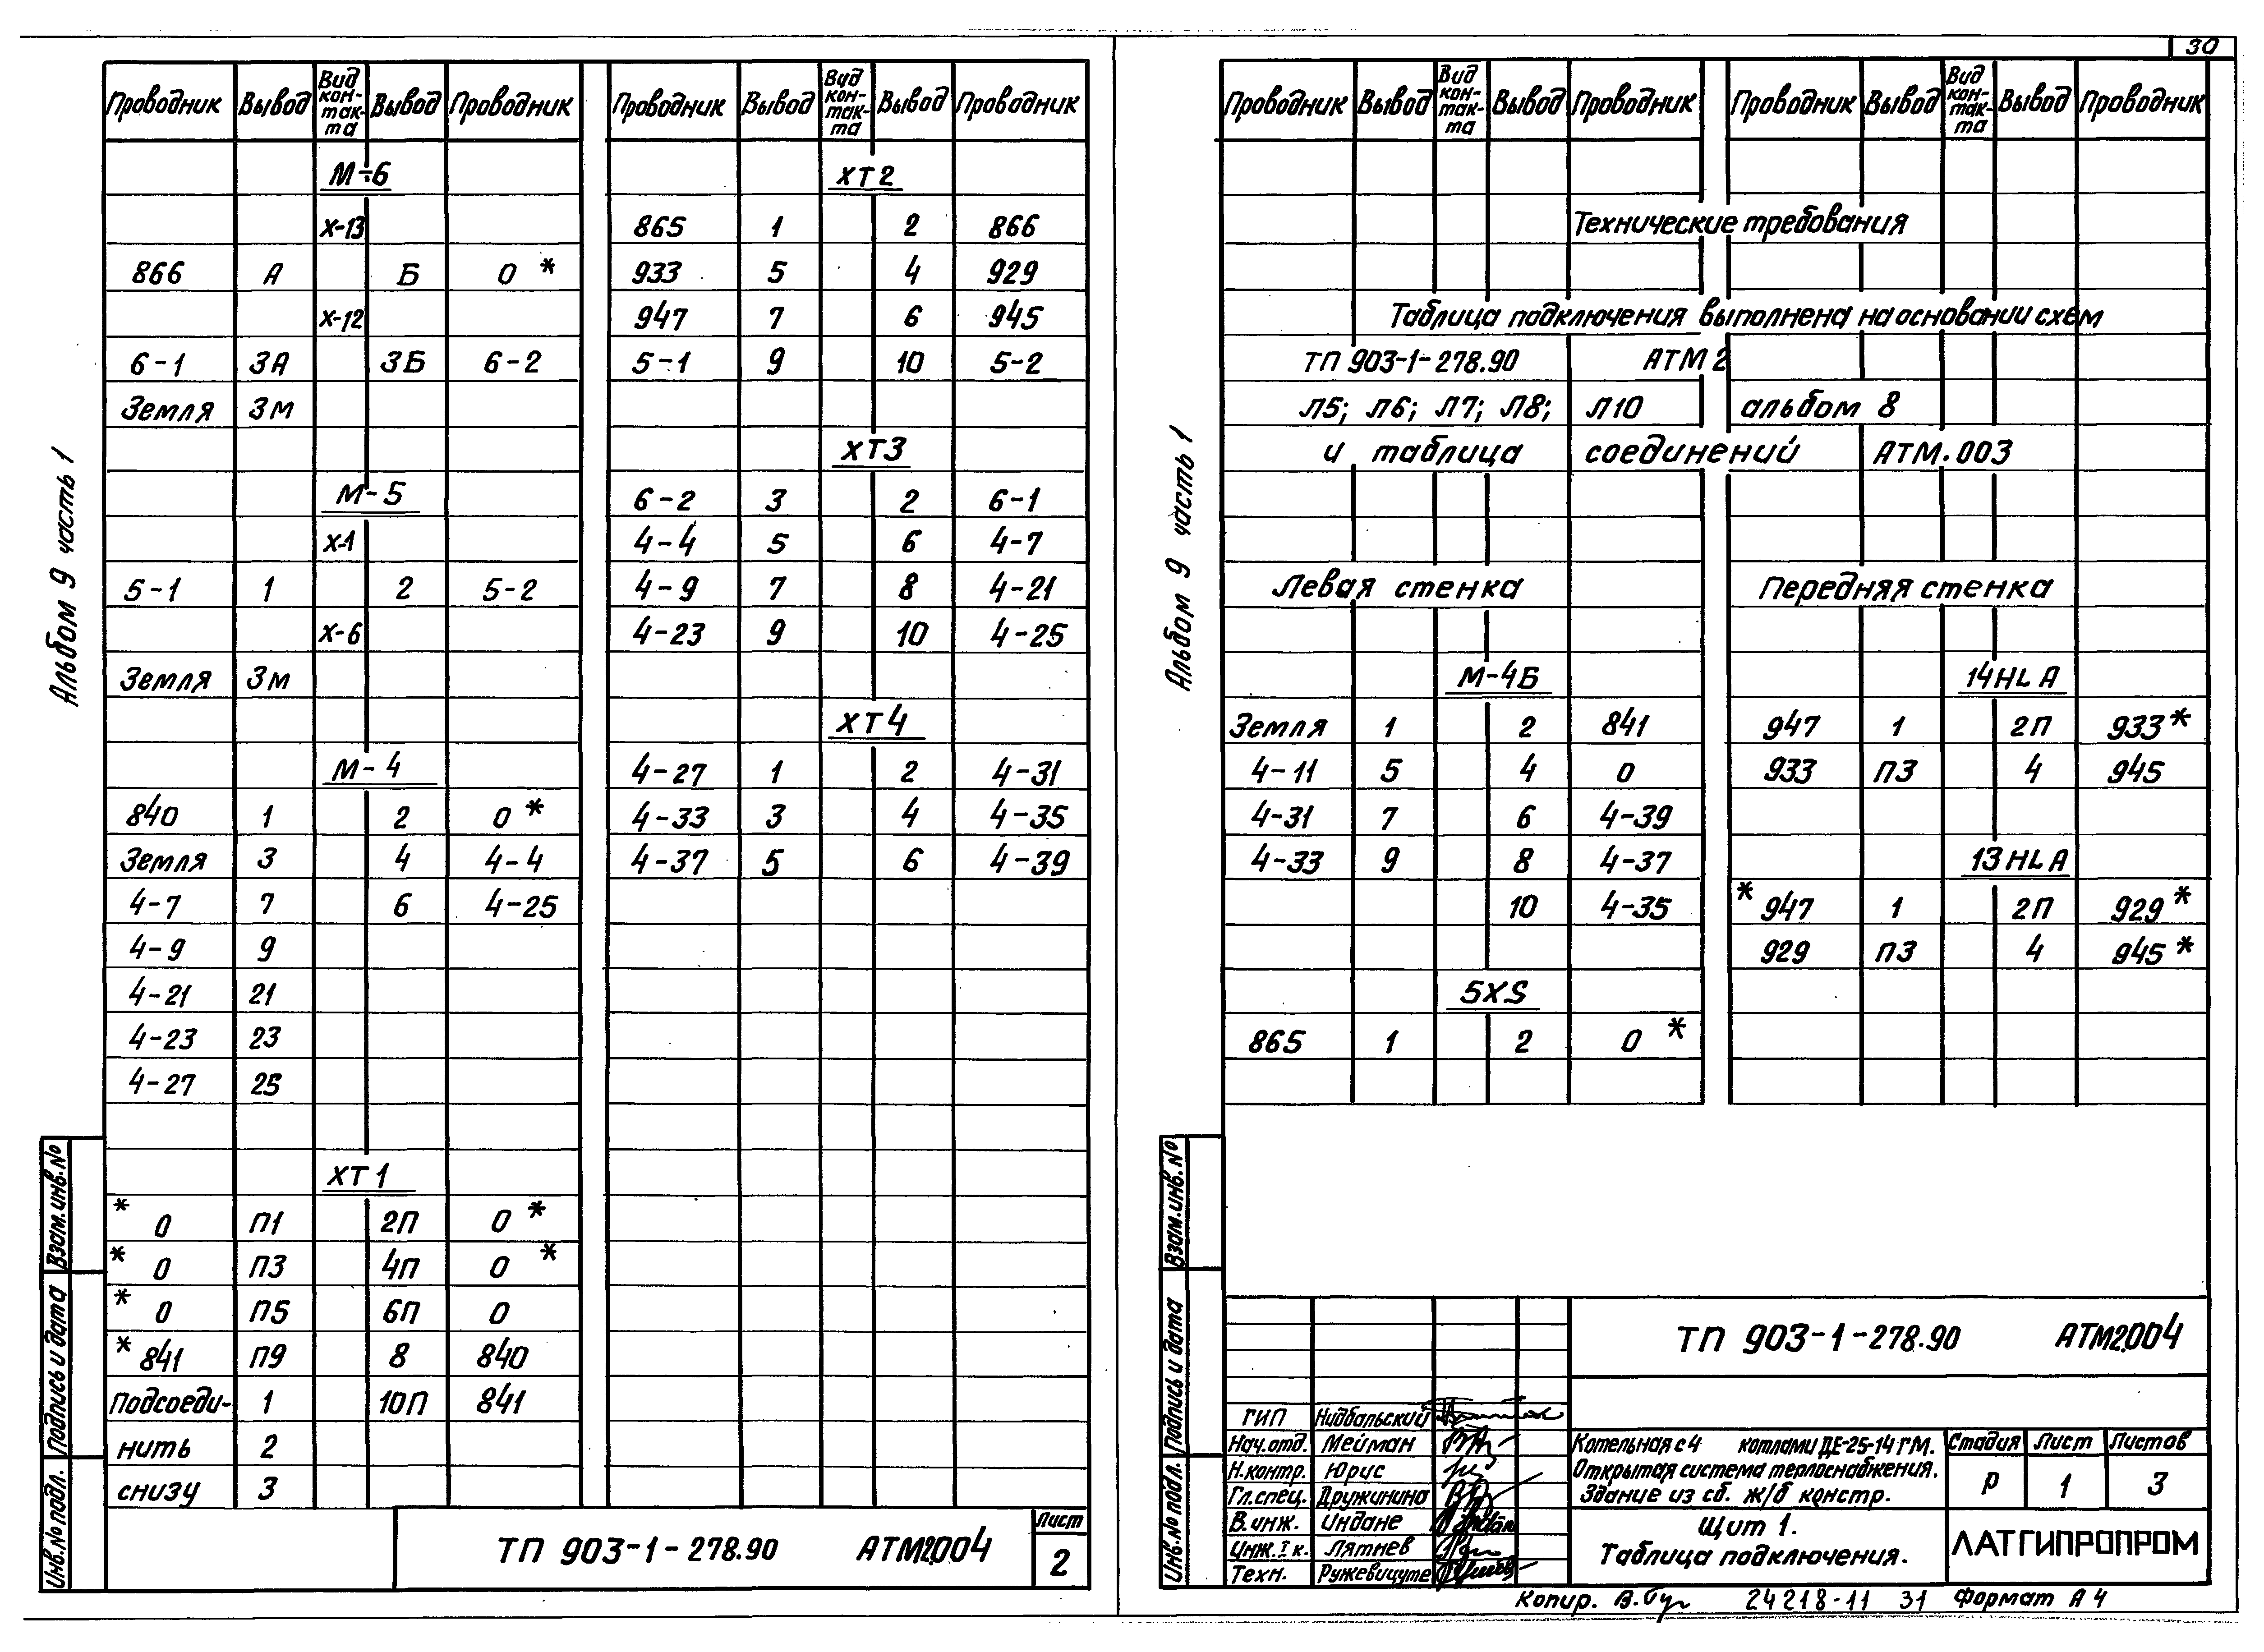 30
Альбом 9 часть 1
Проводник Вывод Вид кон-так-та Вывод Проводник
М-6
Х-13
866 А Б 0 *
Х-12
6-1 3А 3Б 6-2
Земля 3м
М-5
Х-1
5-1 1 2 5-2
Х-6
Земля 3м
М-4
840 1 2 0 *
Земля 3 4 4-4
4-7 7 6 4-25
4-9 9
4-21 21
4-23 23
4-27 25
ХТ1
* 0 П1 2П 0 *
* 0 П3 4П 0 *
* 0 П5 6П 0
* 841 П9 8 840
Подсоеди- 1 10П 841
нить 2
снизу 3
Проводник Вывод Вид кон-так-та Вывод Проводник
ХТ2
865 1 2 866
933 5 4 929
947 7 6 945
5-1 9 10 5-2
ХТ3
6-2 3 2 6-1
4-4 5 6 4-7
4-9 7 8 4-21
4-23 9 10 4-25
ХТ4
4-27 1 2 4-31
4-33 3 4 4-35
4-37 5 6 4-39
Взам.инв.№
Подпись и дата
Инв.№ подл.
ТП 903-1-278.90 АТМ2.004
Лист
2
Альбом 9 часть 1
Проводник Вывод Вид кон-так-та Вывод Проводник
Проводник Вывод Вид кон-так-та Вывод Проводник
Технические требования
Таблица подключения выполнена на основании схем
ТП 903-1-278.90 АТМ 2
Л5; Л6; Л7; Л8; Л10 альбом 8
и таблица соединений АТМ.003
Левая стенка
М-4Б
Земля 1 2 841
4-11 5 4 0
4-31 7 6 4-39
4-33 9 8 4-37
10 4-35
5XS
865 1 2 0 *
Передняя стенка
14HLA
947 1 2П 933 *
933 П3 4 945
13HLA
* 947 1 2П 929 *
929 П3 4 945 *
Взам.инв.№
Подпись и дата
Инв.№ подл.
ТП 903-1-278.90 АТМ2.004
ГИП Нидбальский
Нач.отд. Мейман
Н.контр. Юрис
Гл.спец. Дружинина
В.инж. Индане
Инж.I к. Лятнев
Техн. Ружевицуте
Котельная с 4 котлами ДЕ-25-14 ГМ.
Открытая система теплоснабжения.
Здание из сб. ж/б констр.
Стадия Лист Листов
Р 1 3
Щит 1.
Таблица подключения.
ЛАТГИПРОПРОМ
Копир. 24218-11 31 Формат А4